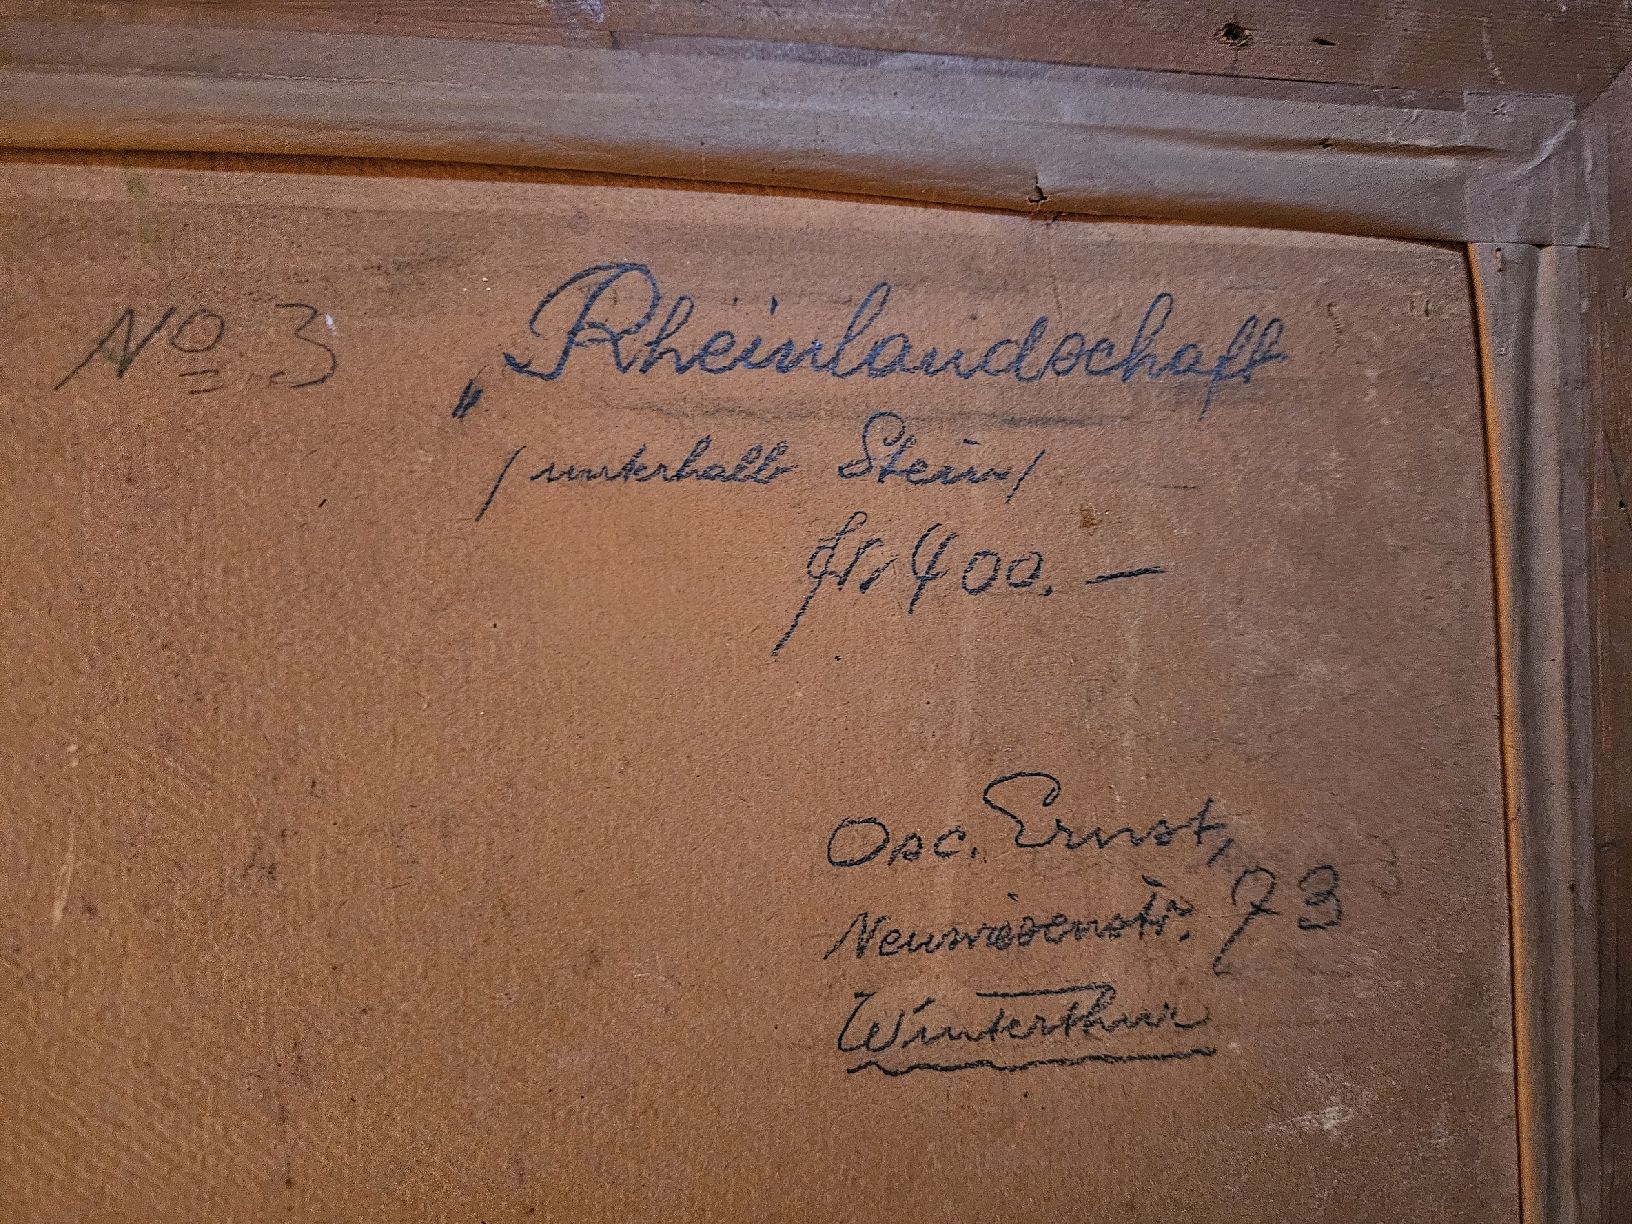 No 3 „Rheinlandschaft"
/unterhalb Stein/
fr. 400.—
Osc. Ernst,
Neuwiesenstr. 73
Winterthur